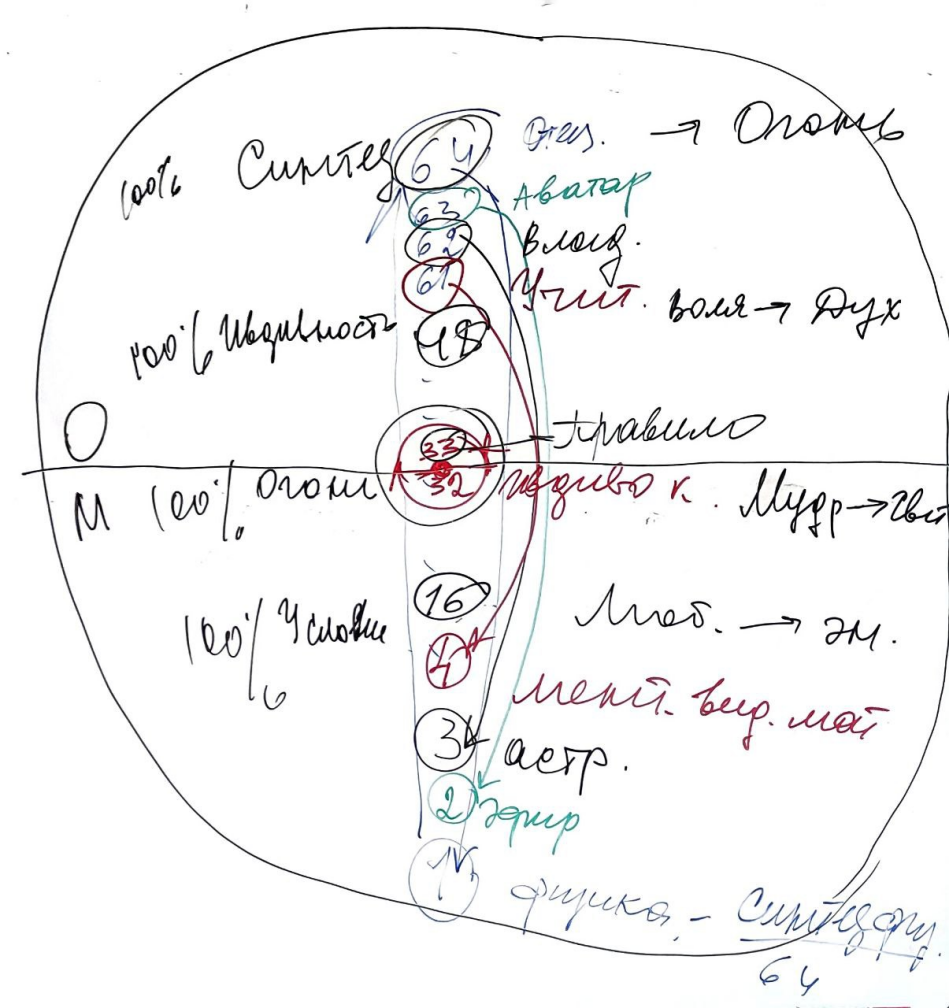 100% Синтез 64 Отец. → Огонь
63 Аватар
62 Влад.
61 Учит. Воля → Дух
100% Ивдивность 48
О 33 Правило
М 100% Огонь 32 Ивдиво к. Мудр →
100% Условие 16 Мат. → эн.
4 мент. вид. мат
3 астр.
2 эфир
1 физика - Синтез физ.
64